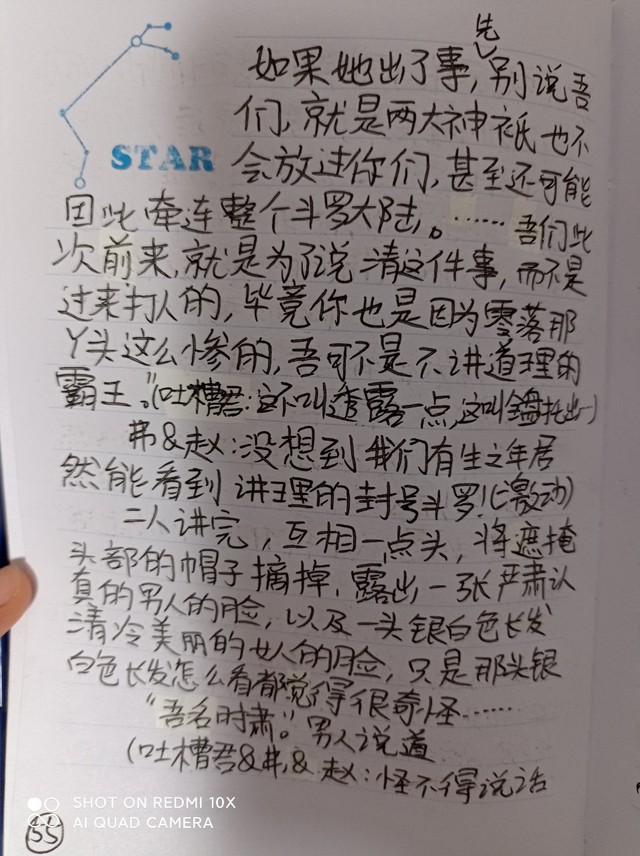 STAR
如果她出了事,先别说吾
们,就是两大神祇也不
会放过你们,甚至还可能
因此牵连整个斗罗大陆。……吾们此
次前来,就是为了说清这件事,而不是
过来打人的,毕竟你也是因为零落那
丫头这么惨的,吾可不是不讲道理的
霸王。”(吐槽君:这不叫透露一点,这叫全盘托出)
弗&赵:没想到我们有生之年居
然能看到讲理的封号斗罗!(激动)
二人讲完,互相一点头,将遮掩
头部的帽子摘掉,露出一张严肃认
真的男人的脸,以及一头银白色长发
清冷美丽的女人的脸,只是那头银
白色长发怎么看都觉得很奇怪……
“吾名时肃。”男人说道
(吐槽君&弗&赵:怪不得说话
SHOT ON REDMI 10X
AI QUAD CAMERA
55